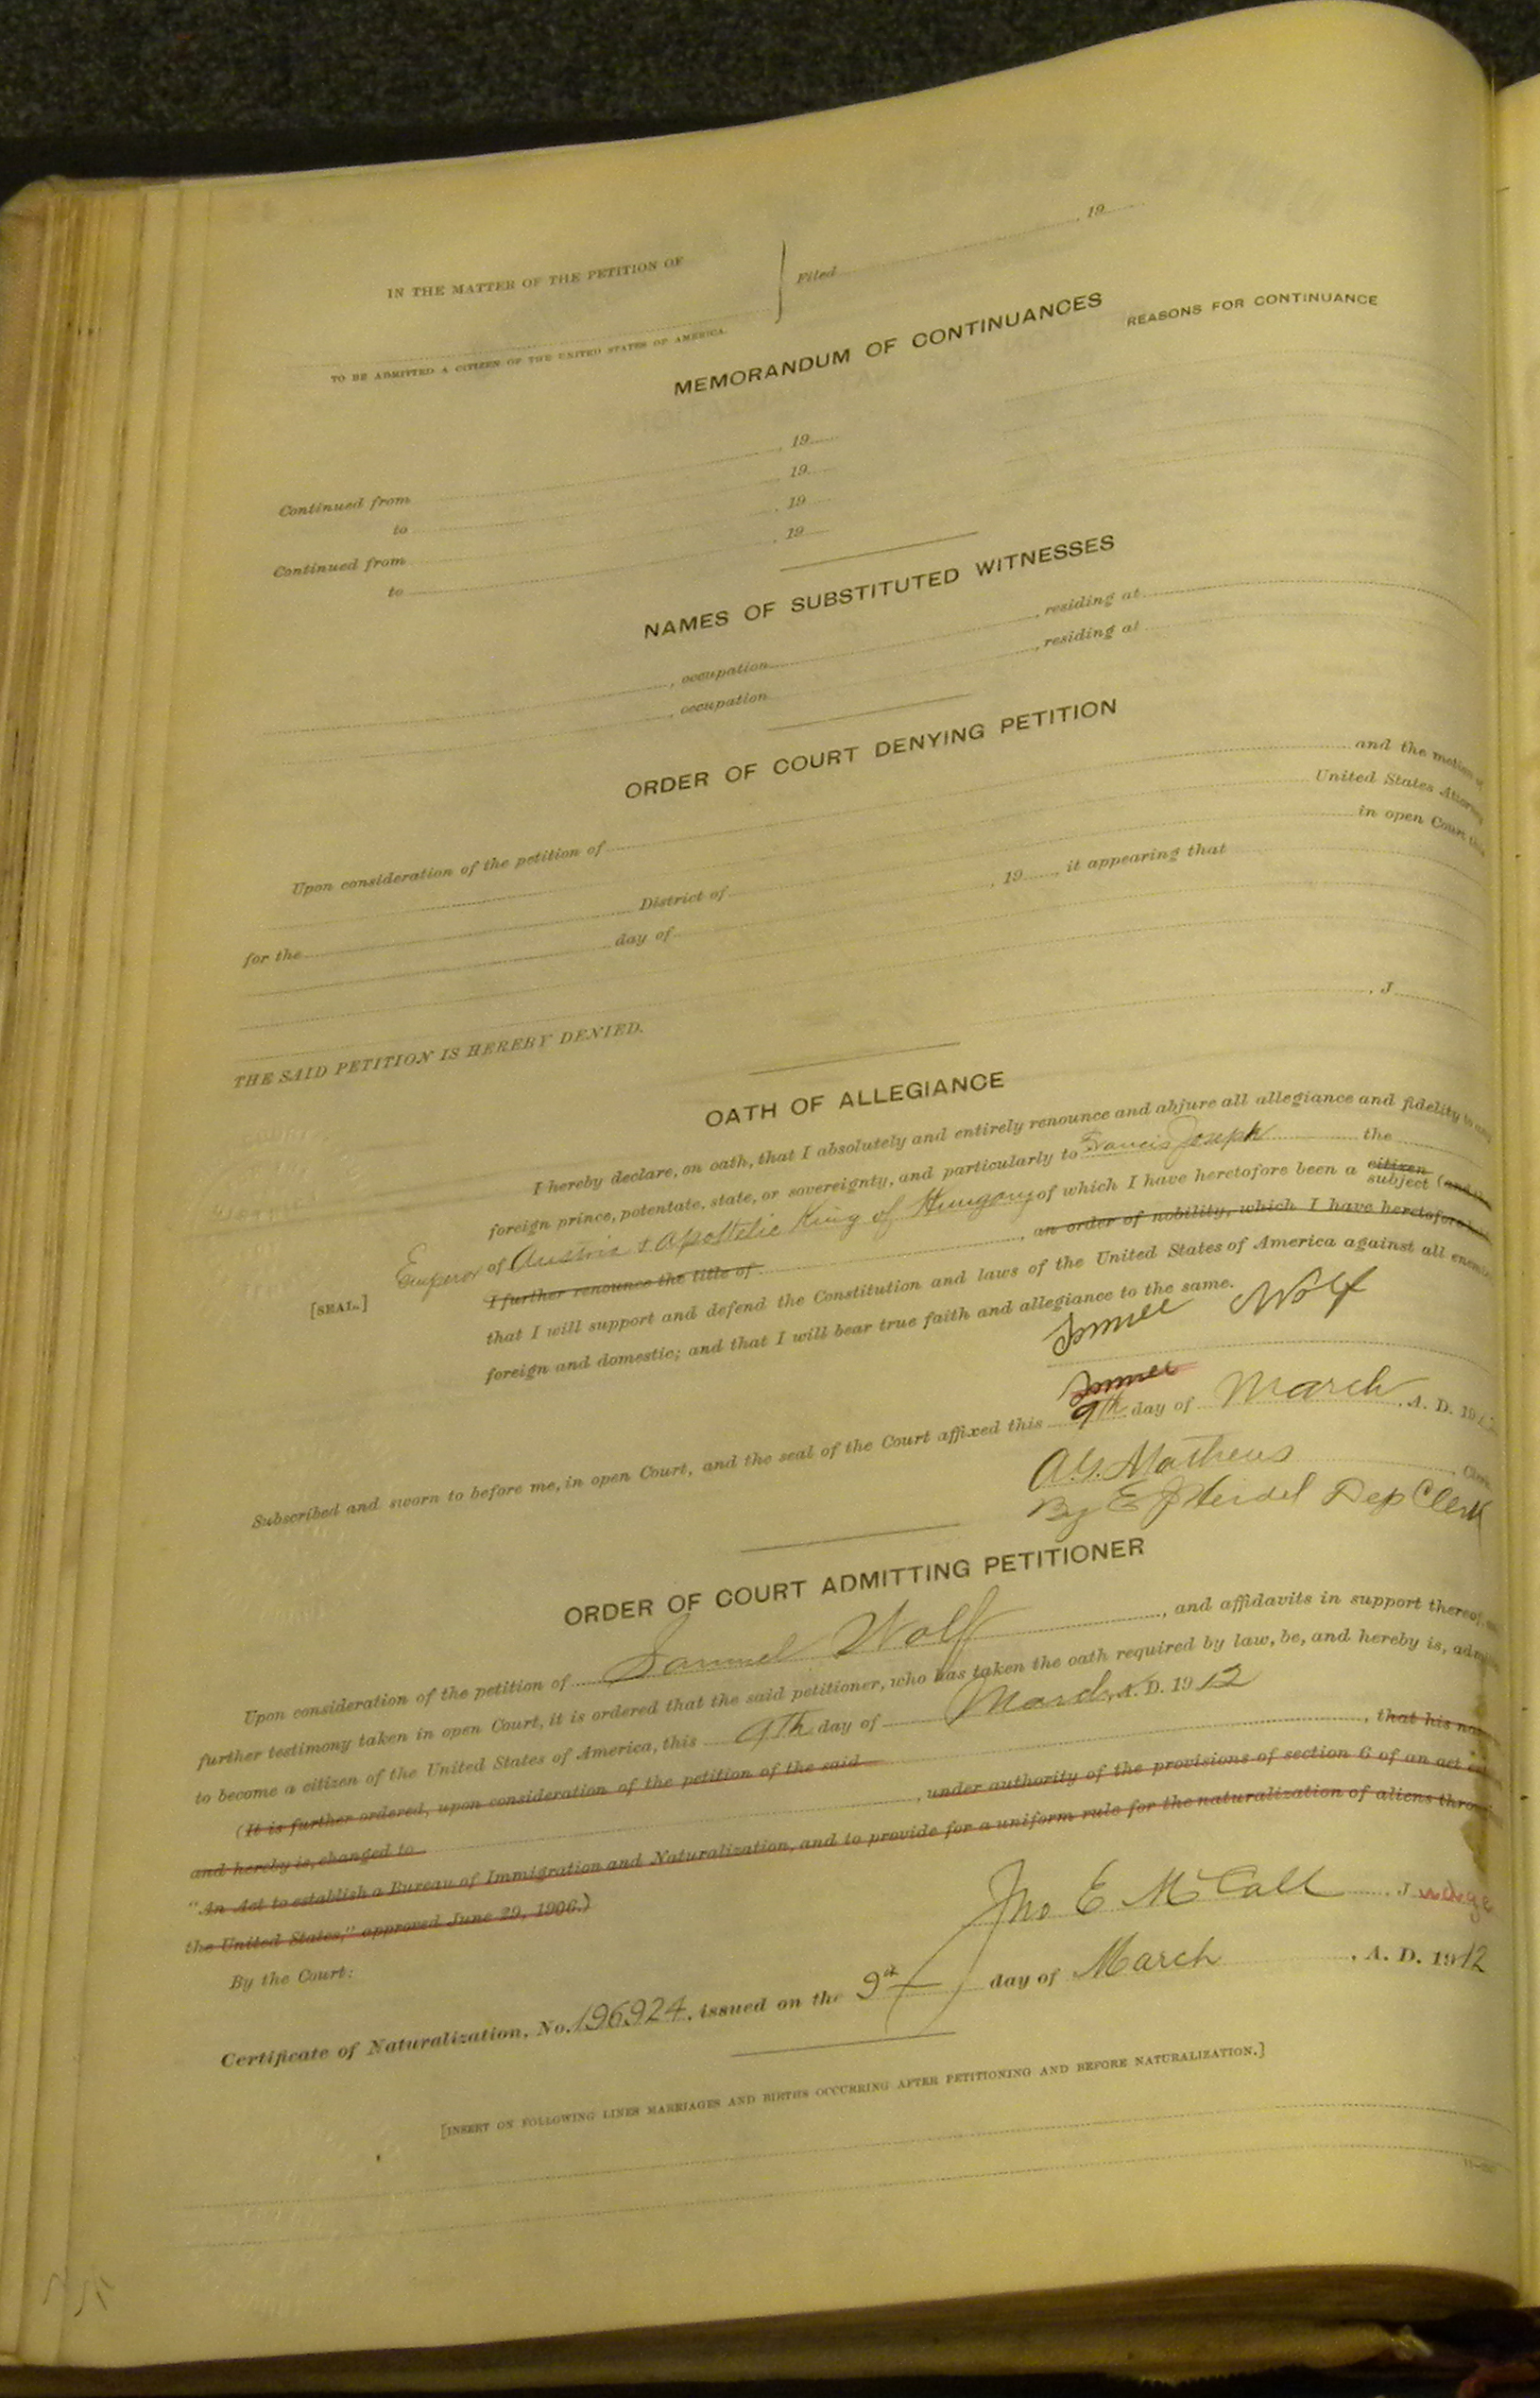 IN THE MATTER OF THE PETITION OF
Filed , 19
TO BE ADMITTED A CITIZEN OF THE UNITED STATES OF AMERICA.
MEMORANDUM OF CONTINUANCES
REASONS FOR CONTINUANCE
Continued from , 19
to , 19
Continued from , 19
to , 19
NAMES OF SUBSTITUTED WITNESSES
, occupation , residing at
, occupation , residing at
ORDER OF COURT DENYING PETITION
Upon consideration of the petition of and the motion of
United States Attorney
for the District of in open Court this
day of , 19 , it appearing that
THE SAID PETITION IS HEREBY DENIED.
, J
OATH OF ALLEGIANCE
I hereby declare, on oath, that I absolutely and entirely renounce and abjure all allegiance and fidelity to any
foreign prince, potentate, state, or sovereignty, and particularly to Francis Joseph the
Emperor of Austria & Apostolic King of Hungary of which I have heretofore been a citizen subject (and the
I further renounce the title of , an order of nobility, which I have heretofore
[SEAL.]
that I will support and defend the Constitution and laws of the United States of America against all enemies
foreign and domestic; and that I will bear true faith and allegiance to the same.
Samuel Wolf
Samuel
Subscribed and sworn to before me, in open Court, and the seal of the Court affixed this 9th day of March , A. D. 1912
A.G. Mathews Clerk
By E J Heidel Dep Clerk
ORDER OF COURT ADMITTING PETITIONER
Upon consideration of the petition of Samuel Wolf , and affidavits in support thereof,
further testimony taken in open Court, it is ordered that the said petitioner, who has taken the oath required by law, be, and hereby is,
to become a citizen of the United States of America, this 9th day of March , A. D. 1912
(It is further ordered, upon consideration of the petition of the said , that his
and hereby is, changed to , under authority of the provisions of section 6 of an act
"An Act to establish a Bureau of Immigration and Naturalization, and to provide for a uniform rule for the naturalization of aliens
the United States," approved June 29, 1906.)
By the Court:
Jno E McCall Judge
Certificate of Naturalization, No. 196924, issued on the 9th day of March , A. D. 1912
[INSERT ON FOLLOWING LINES MARRIAGES AND BIRTHS OCCURRING AFTER PETITIONING AND BEFORE NATURALIZATION.]